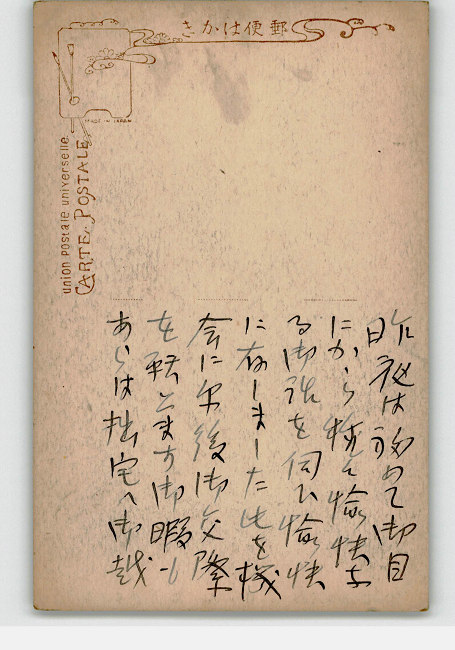 郵便はかき
MADE IN JAPAN
union postale universelle
CARTE POSTALE
昨夜は初めて御目
にかゝり種々愉快な
る御話を伺ひ愉快
に存しました此を機
会に尓後御交際
を願上ます御暇も
あらは拙宅へ御越